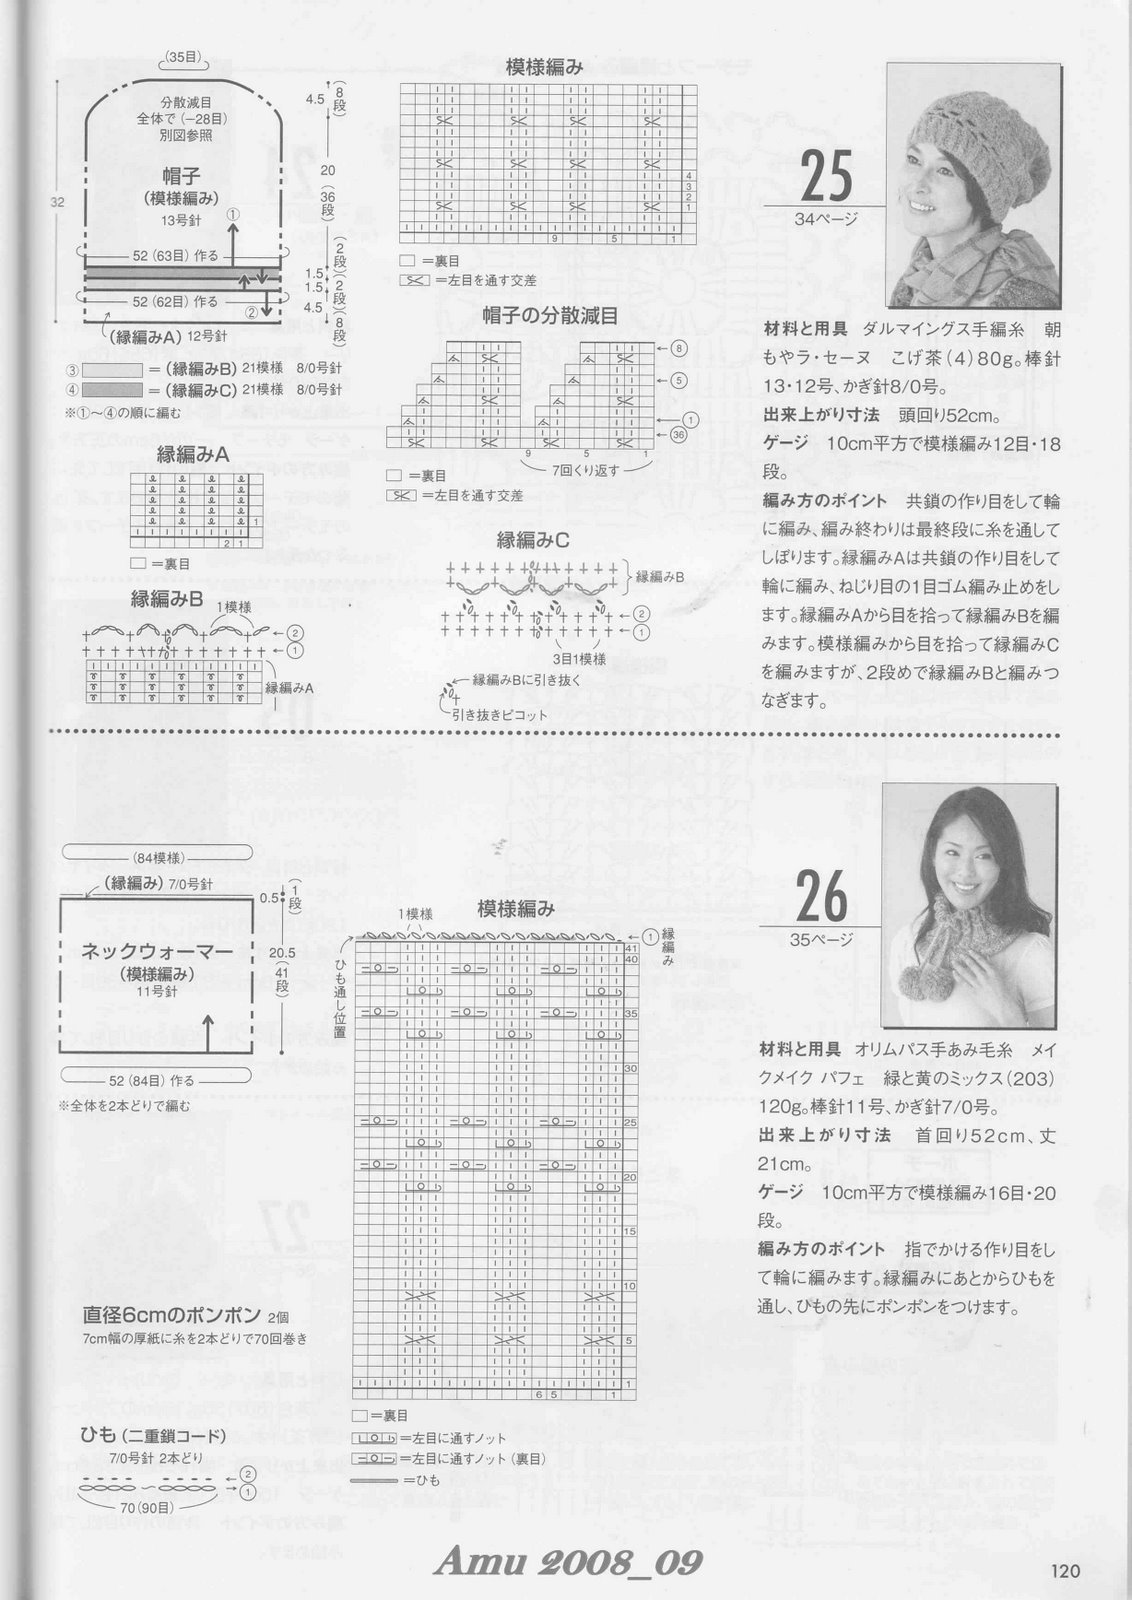 (35目)
分散減目
全体で(−28目)
別図参照
帽子
(模様編み)
13号針
①
52(63目)作る
52(62目)作る
②
(縁編みA)12号針
32
4.5
(8段)
20
(36段)
1.5
(2段)
1.5
(2段)
4.5
(8段)
③ =(縁編みB)21模様 8/0号針
④ =(縁編みC)21模様 8/0号針
※①〜④の順に編む
縁編みA
1
2 1
□=裏目
縁編みB
1模様
②
①
縁編みA
模様編み
4
3
2
1
9 5 1
□=裏目
=左目を通す交差
帽子の分散減目
⑧
⑤
①
㊱
9 5 1
7回くり返す
□=裏目
=左目を通す交差
縁編みC
縁編みB
②
①
3目1模様
縁編みBに引き抜く
引き抜きピコット
25
34ページ
材料と用具 ダルマイングス手編糸 朝
もやラ・セーヌ こげ茶(4)80g。棒針
13・12号、かぎ針8/0号。
出来上がり寸法 頭回り52cm。
ゲージ 10cm平方で模様編み12目・18
段。
編み方のポイント 共鎖の作り目をして輪
に編み、編み終わりは最終段に糸を通して
しぼります。縁編みAは共鎖の作り目をして
輪に編み、ねじり目の1目ゴム編み止めをし
ます。縁編みAから目を拾って縁編みBを編
みます。模様編みから目を拾って縁編みC
を編みますが、2段めで縁編みBと編みつ
なぎます。
(84模様)
(縁編み)7/0号針
0.5
(1段)
ネックウォーマー
(模様編み)
11号針
20.5
(41段)
52(84目)作る
※全体を2本どりで編む
直径6cmのポンポン 2個
7cm幅の厚紙に糸を2本どりで70回巻き
ひも(二重鎖コード)
7/0号針 2本どり
②
①
70(90目)
模様編み
1模様
① 縁編み
ひも通し位置
41
40
35
30
25
20
15
10
5
1
6 5 1
□=裏目
=左目に通すノット
=左目に通すノット(裏目)
=ひも
26
35ページ
材料と用具 オリムパス手あみ毛糸 メイ
クメイク パフェ 緑と黄のミックス(203)
120g。棒針11号、かぎ針7/0号。
出来上がり寸法 首回り52cm、丈
21cm。
ゲージ 10cm平方で模様編み16目・20
段。
編み方のポイント 指でかける作り目をし
て輪に編みます。縁編みにあとからひもを
通し、ひもの先にポンポンをつけます。
Amu 2008_09
120